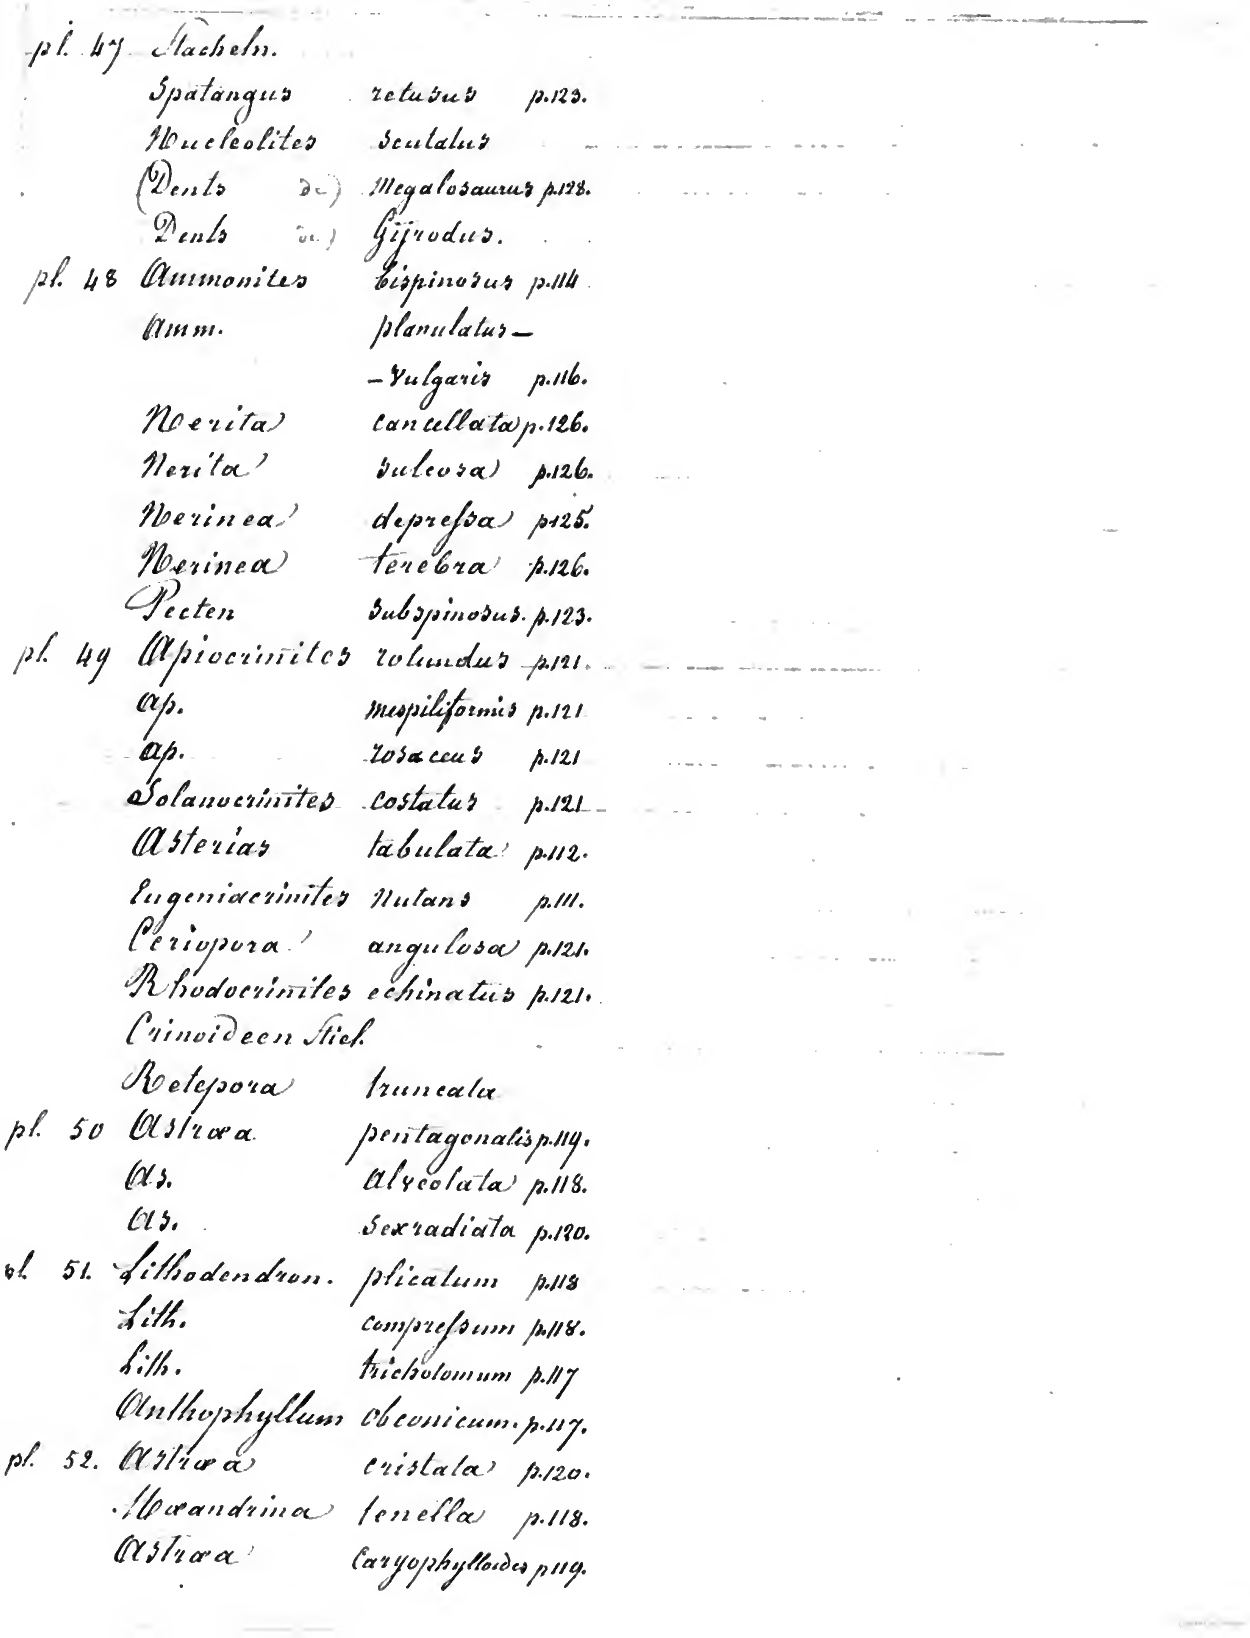 pl. 47 Stacheln.
Spatangus retusus p.123.
Nucleolites scutatus
(Dents de) Megalosaurus p.128.
Dents de) Gijrodus.
pl. 48 Ammonites bispinosus p.114
Amm. planulatus –
– Vulgaris p.116.
Nerita cancellata p.126.
Nerita sulcosa p.126.
Nerinea depreſsa p.125.
Nerinea terebra p.126.
Pecten subspinosus. p.123.
pl. 49 Apiocrinites rotundus p.121.
ap. mespiliformis p.121
ap. rosaceus p.121
Solanocrinites costatus p.121
Asterias tabulata p.112.
Eugeniacrinites nutans p.111.
Ceriopora angulosa p.121.
Rhodocrinites echinatus p.121.
Crinoideen Stiel.
Retepora truncata
pl. 50 Astræa pentagonalis p.119.
As. alveolata p.118.
As. sexradiata p.120.
pl. 51. Lithodendron. plicatum p.118
Lith. compreſsum p.118.
Lith. trichotomum p.117
Anthophyllum obconicum. p.117.
pl. 52. Astræa cristata p.120.
Mæandrina tenella p.118.
Astræa Caryophylloides p.119.